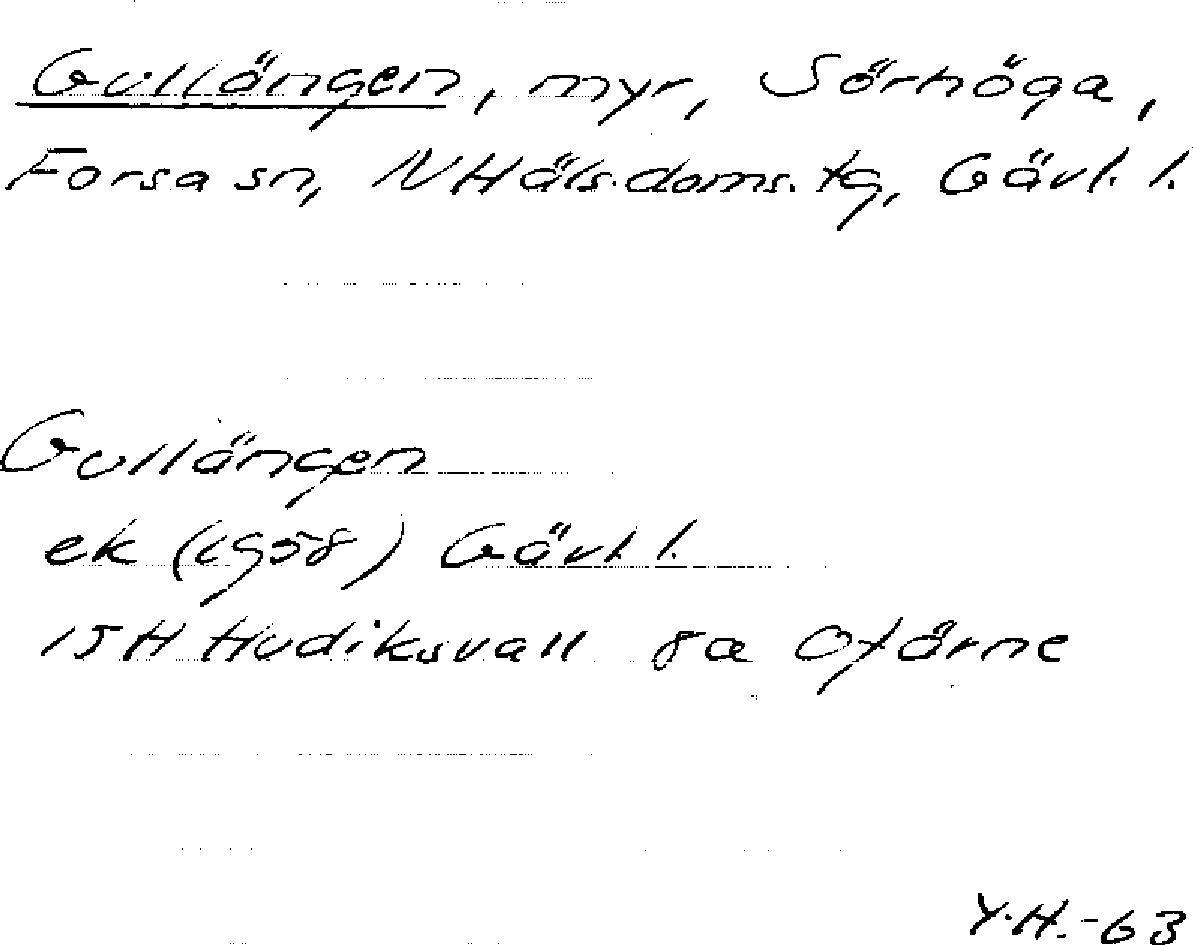 Gullängen, myr, Sörhöga,
Forsa sn, N Häls. doms. tg, Gävl. l.
Gullängen
ek (1958) Gävl. l.
15H Hudiksvall 8a Ofärne
Y.H.-63